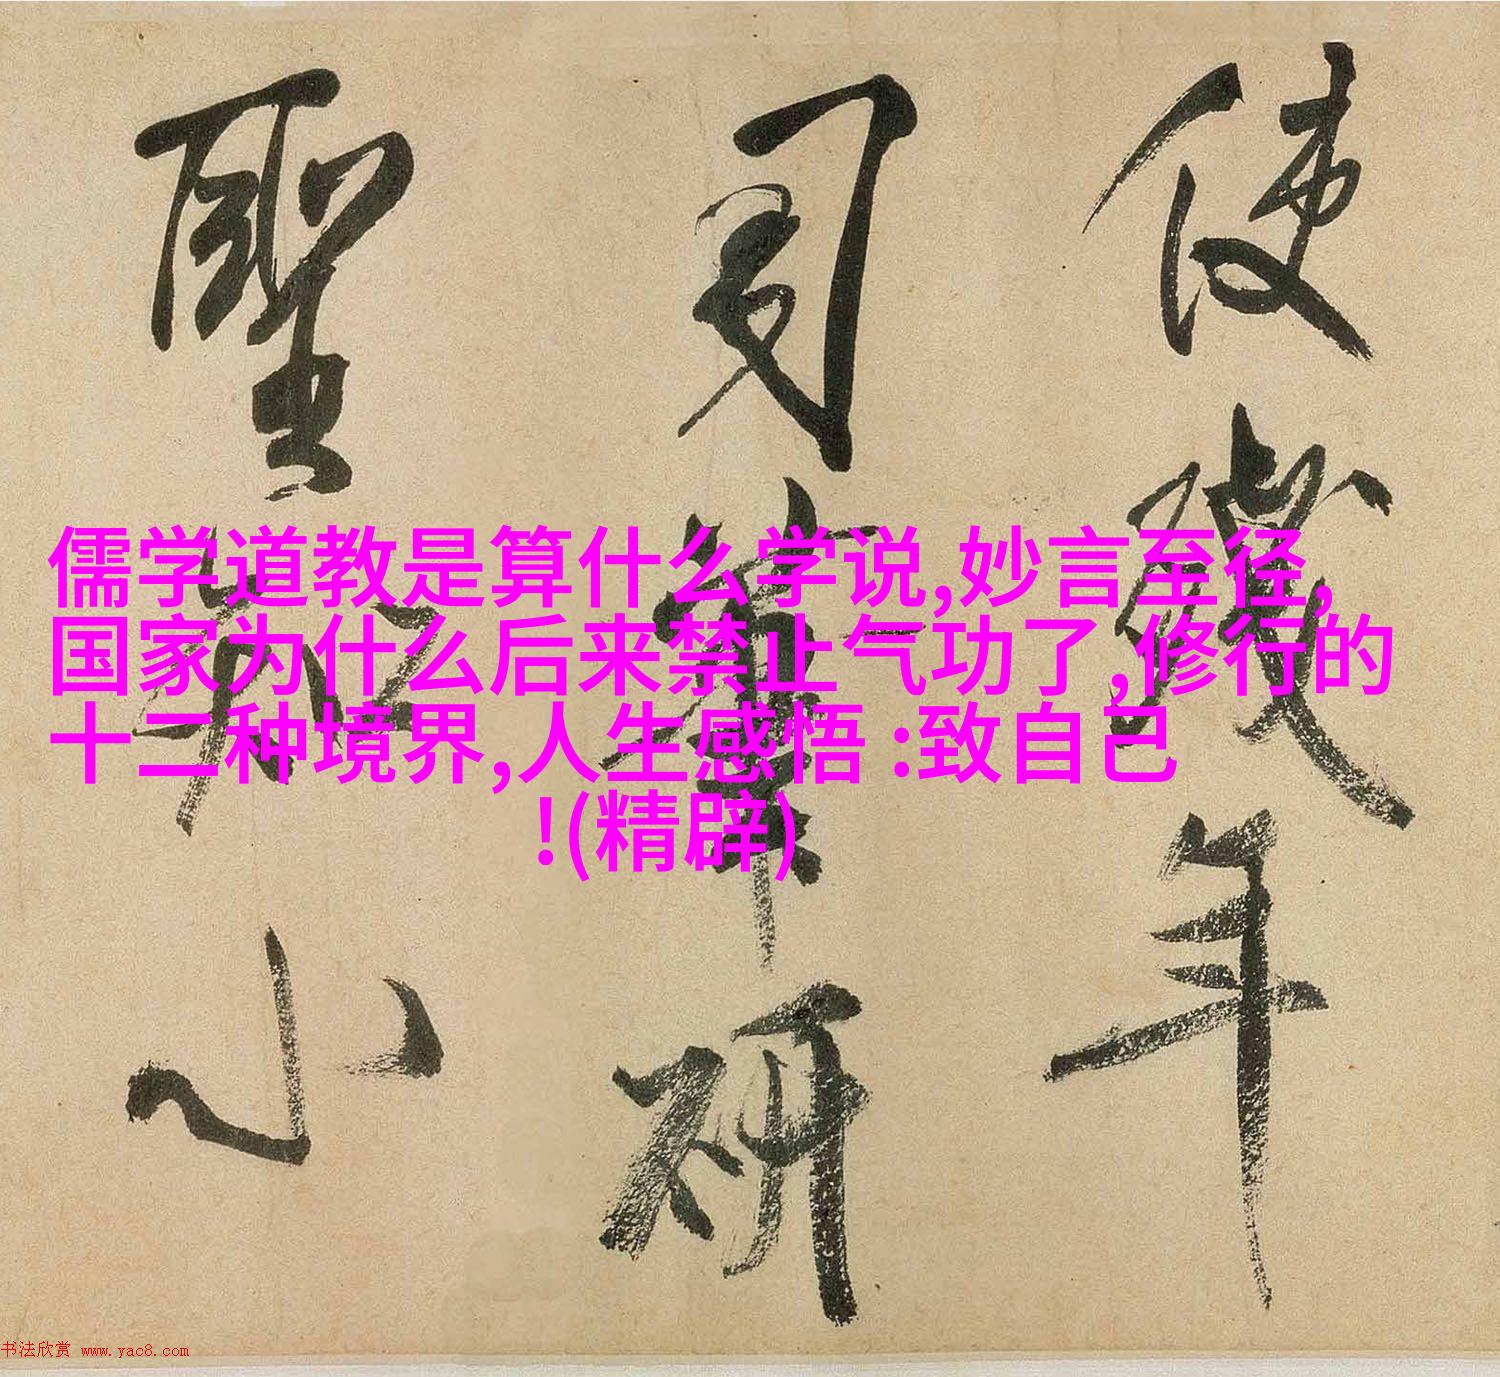 使
年
司
研
聖
小
儒学道教是算什么学说,妙言至径,
国家为什么后来禁止气功了,修行的
十二种境界,人生感悟 :致自己
!(精辟)
书法欣赏 www.yac8.com